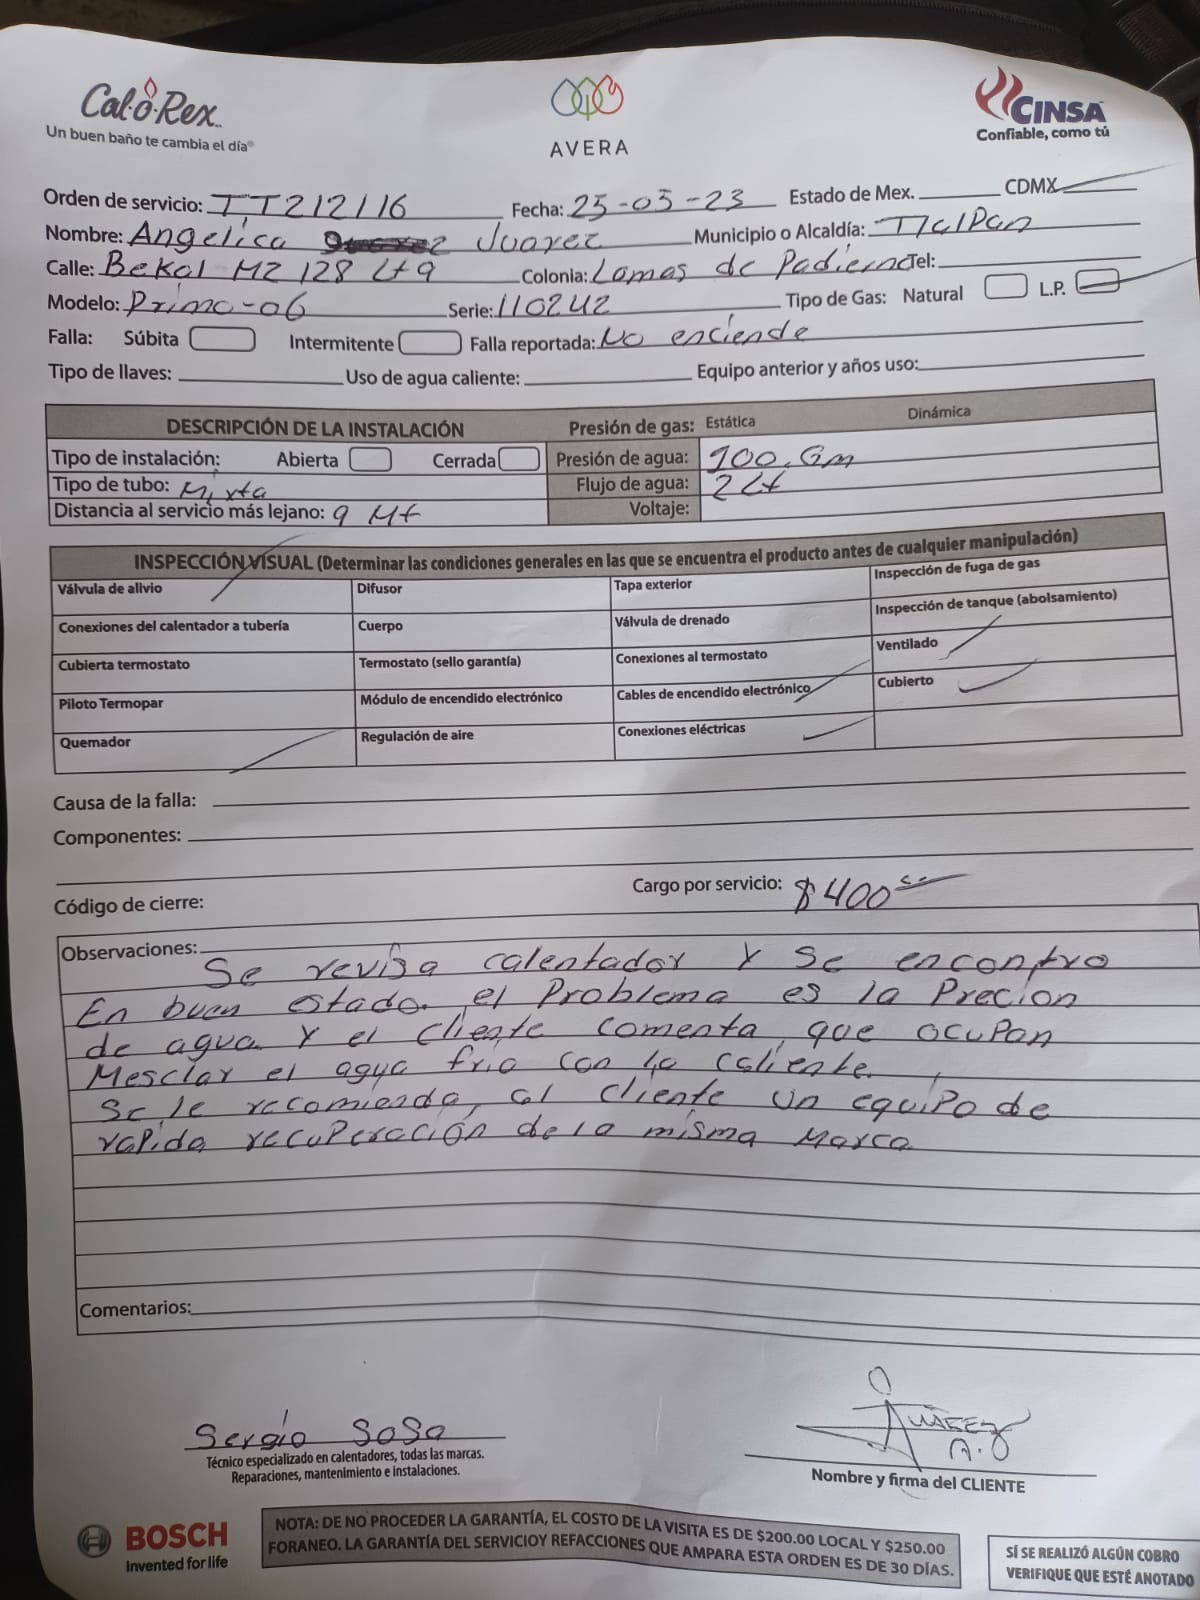 Cal-o-Rex
Un buen baño te cambia el día®
AVERA
CINSA
Confiable, como tú
Orden de servicio: TT212116 Fecha: 25-05-23 Estado de Mex. CDMX
Nombre: Angelica Juarez Municipio o Alcaldía: TlalPan
Calle: Bekal MZ 128 Lt 9 Colonia: Lomas de Padierna Tel:
Modelo: Primo-06 Serie: 110242 Tipo de Gas: Natural L.P.
Falla: Súbita Intermitente Falla reportada: No enciende
Tipo de llaves: Uso de agua caliente: Equipo anterior y años uso:
DESCRIPCIÓN DE LA INSTALACIÓN Presión de gas: Estática Dinámica
Tipo de instalación: Abierta Cerrada Presión de agua: 100. Gm
Tipo de tubo: Mixta Flujo de agua: 2 Lt
Distancia al servicio más lejano: 9 Mt Voltaje:
INSPECCIÓN VISUAL (Determinar las condiciones generales en las que se encuentra el producto antes de cualquier manipulación)
Válvula de alivio Difusor Tapa exterior Inspección de fuga de gas
Conexiones del calentador a tubería Cuerpo Válvula de drenado Inspección de tanque (abolsamiento)
Cubierta termostato Termostato (sello garantía) Conexiones al termostato Ventilado
Piloto Termopar Módulo de encendido electrónico Cables de encendido electrónico Cubierto
Quemador Regulación de aire Conexiones eléctricas
Causa de la falla:
Componentes:
Código de cierre: Cargo por servicio: $400
Observaciones:
Se revisa calentador y Se encontro
En buen estado. el Problema es la Precion
de agua y el cliente comenta que ocupan
Mesclar el agua fria con la caliente.
Se le recomienda, al cliente un equipo de
rapida recuperación de la misma Marca
Comentarios:
Sergio SoSa
Técnico especializado en calentadores, todas las marcas.
Reparaciones, mantenimiento e instalaciones.
JUÁREZ
A.J
Nombre y firma del CLIENTE
BOSCH
Invented for life
NOTA: DE NO PROCEDER LA GARANTÍA, EL COSTO DE LA VISITA ES DE $200.00 LOCAL Y $250.00
FORANEO. LA GARANTÍA DEL SERVICIOY REFACCIONES QUE AMPARA ESTA ORDEN ES DE 30 DÍAS.
SÍ SE REALIZÓ ALGÚN COBRO
VERIFIQUE QUE ESTÉ ANOTADO